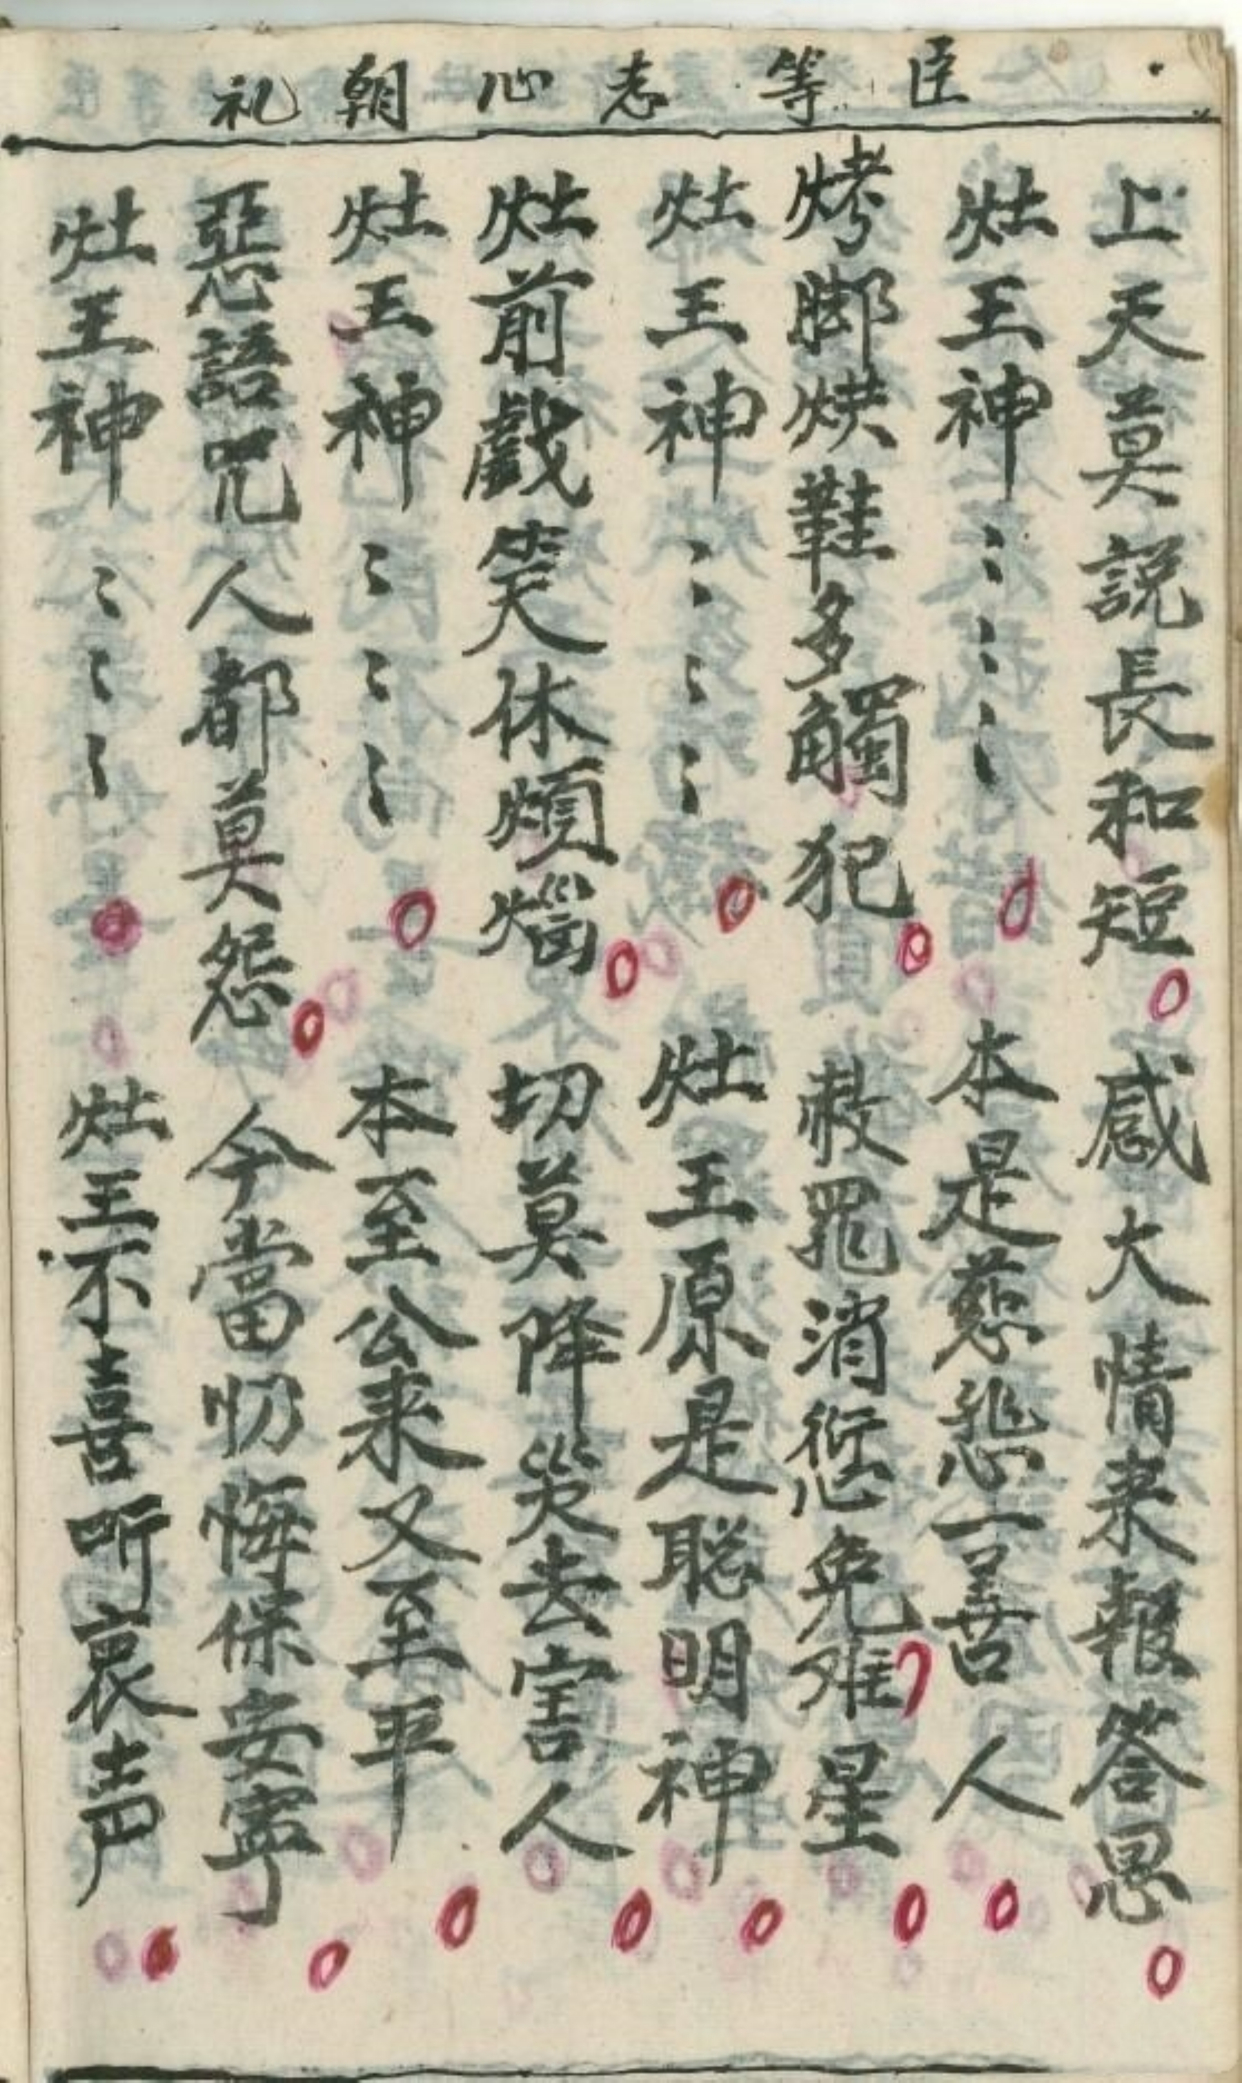 臣等志心朝礼
上天莫説長和短 感大情来報答恩
灶王神〻〻〻 本是慈悲一善人
烤脚烘鞋多觸犯 赦罪消愆免难星
灶王神〻〻〻 灶王原是聪明神
灶前戲笑休煩惱 切莫降災去害人
灶王神〻〻〻 本至公来又至平
惡語咒人都莫怨 今當忉悔保安寧
灶王神〻〻〻 灶王不喜听哀声